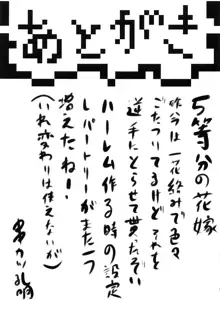 あとがき
5等分の花嫁
昨今は一花絡みで色々
ごたついてるけどそれを
逆手にとらせて貰たぞい
ハーレム作る時の設定
レパートリーがまた一つ
増えたねー!
(いれ変わりは使えないが)